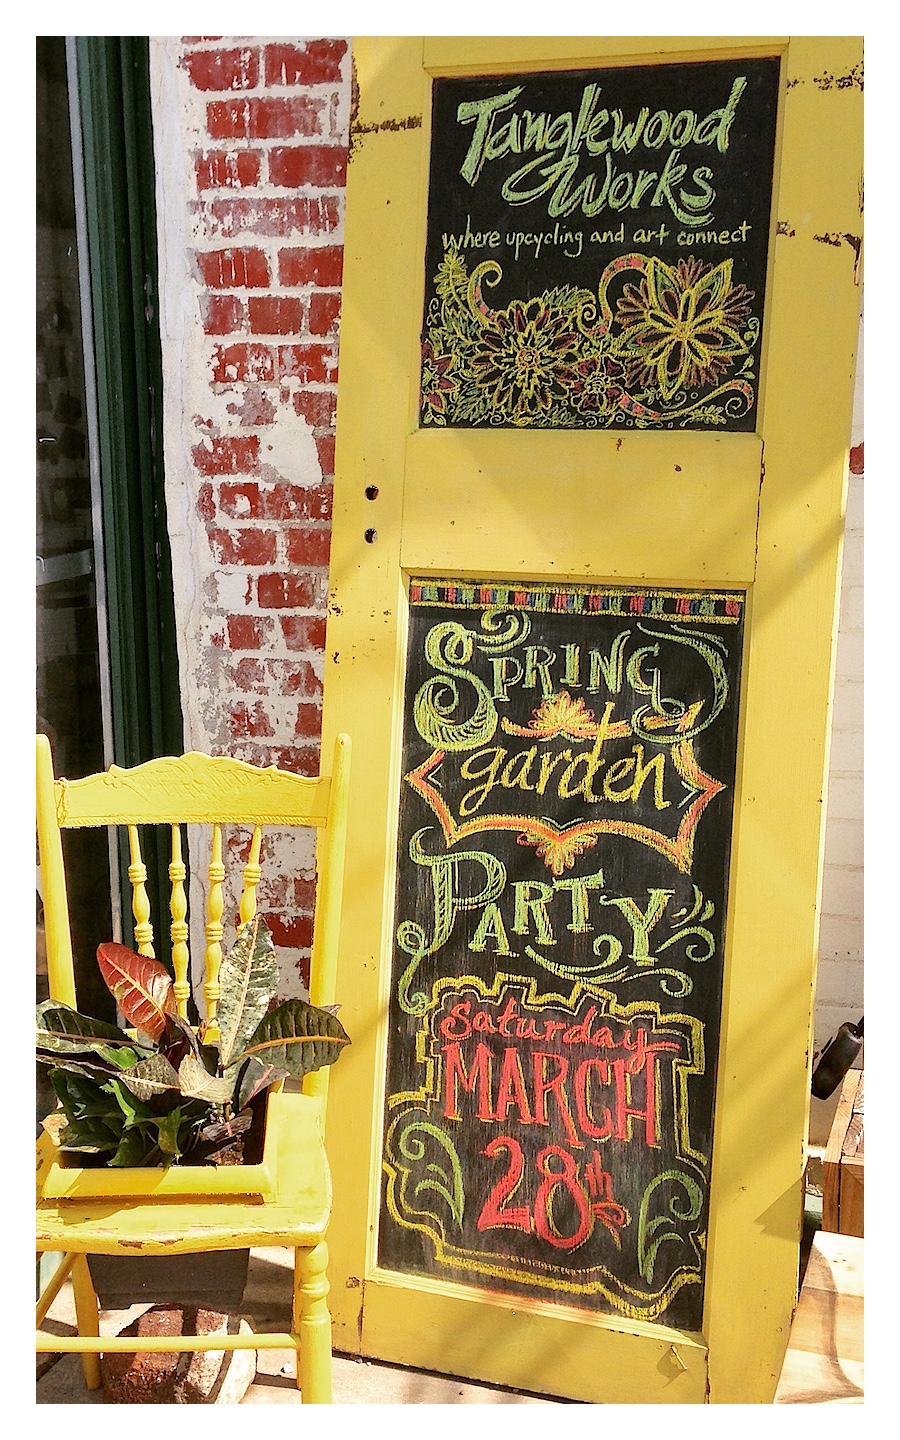 Tanglewood
Works
where upcycling and art connect
SPRING
garden
PARTY
Saturday
MARCH
28th